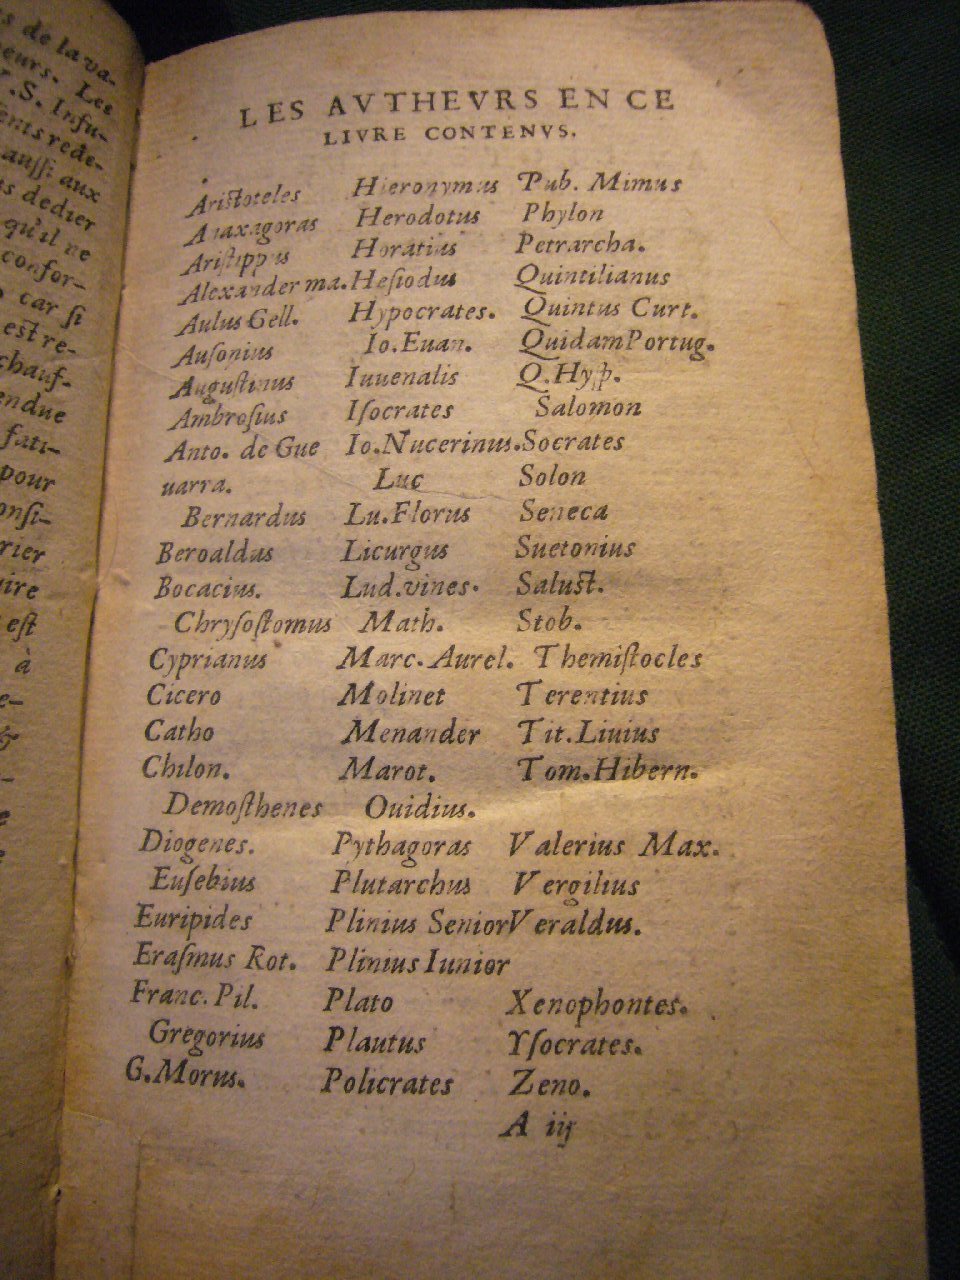 s de la va-
eurs. Les
.S. Infu-
ents rede-
auſſi aux
s dedier
qu'il ne
confor-
car ſi
est re-
chauf-
endue
fati-
pour
onſi-
rier
ire
eſt
à
e-
&
LES AVTHEVRS EN CE
LIVRE CONTENVS.
Ariſtoteles
Anaxagoras
Ariſtippus
Alexander ma.
Aulus Gell.
Auſonius
Auguſtinus
Ambroſius
Anto. de Gue
uarra.
Bernardus
Beroaldus
Bocacius.
Chryſoſtomus
Cyprianus
Cicero
Catho
Chilon.
Demoſthenes
Diogenes.
Euſebius
Euripides
Eraſmus Rot.
Franc. Pil.
Gregorius
G. Morus.
Hieronymus
Herodotus
Horatius
Heſiodus
Hypocrates.
Io. Euan.
Iuuenalis
Iſocrates
Io. Nucerinus.
Luc
Lu. Florus
Licurgus
Lud. vines.
Math.
Marc. Aurel.
Molinet
Menander
Marot.
Ouidius.
Pythagoras
Plutarchus
Plinius Senior
Plinius Iunior
Plato
Plautus
Policrates
Pub. Mimus
Phylon
Petrarcha.
Quintilianus
Quintus Curt.
Quidam Portug.
Q. Hyſp.
Salomon
Socrates
Solon
Seneca
Suetonius
Saluſt.
Stob.
Themiſtocles
Terentius
Tit. Liuius
Tom. Hibern.
Valerius Max.
Vergilius
Veraldus.
Xenophontes.
Yſocrates.
Zeno.
A iij